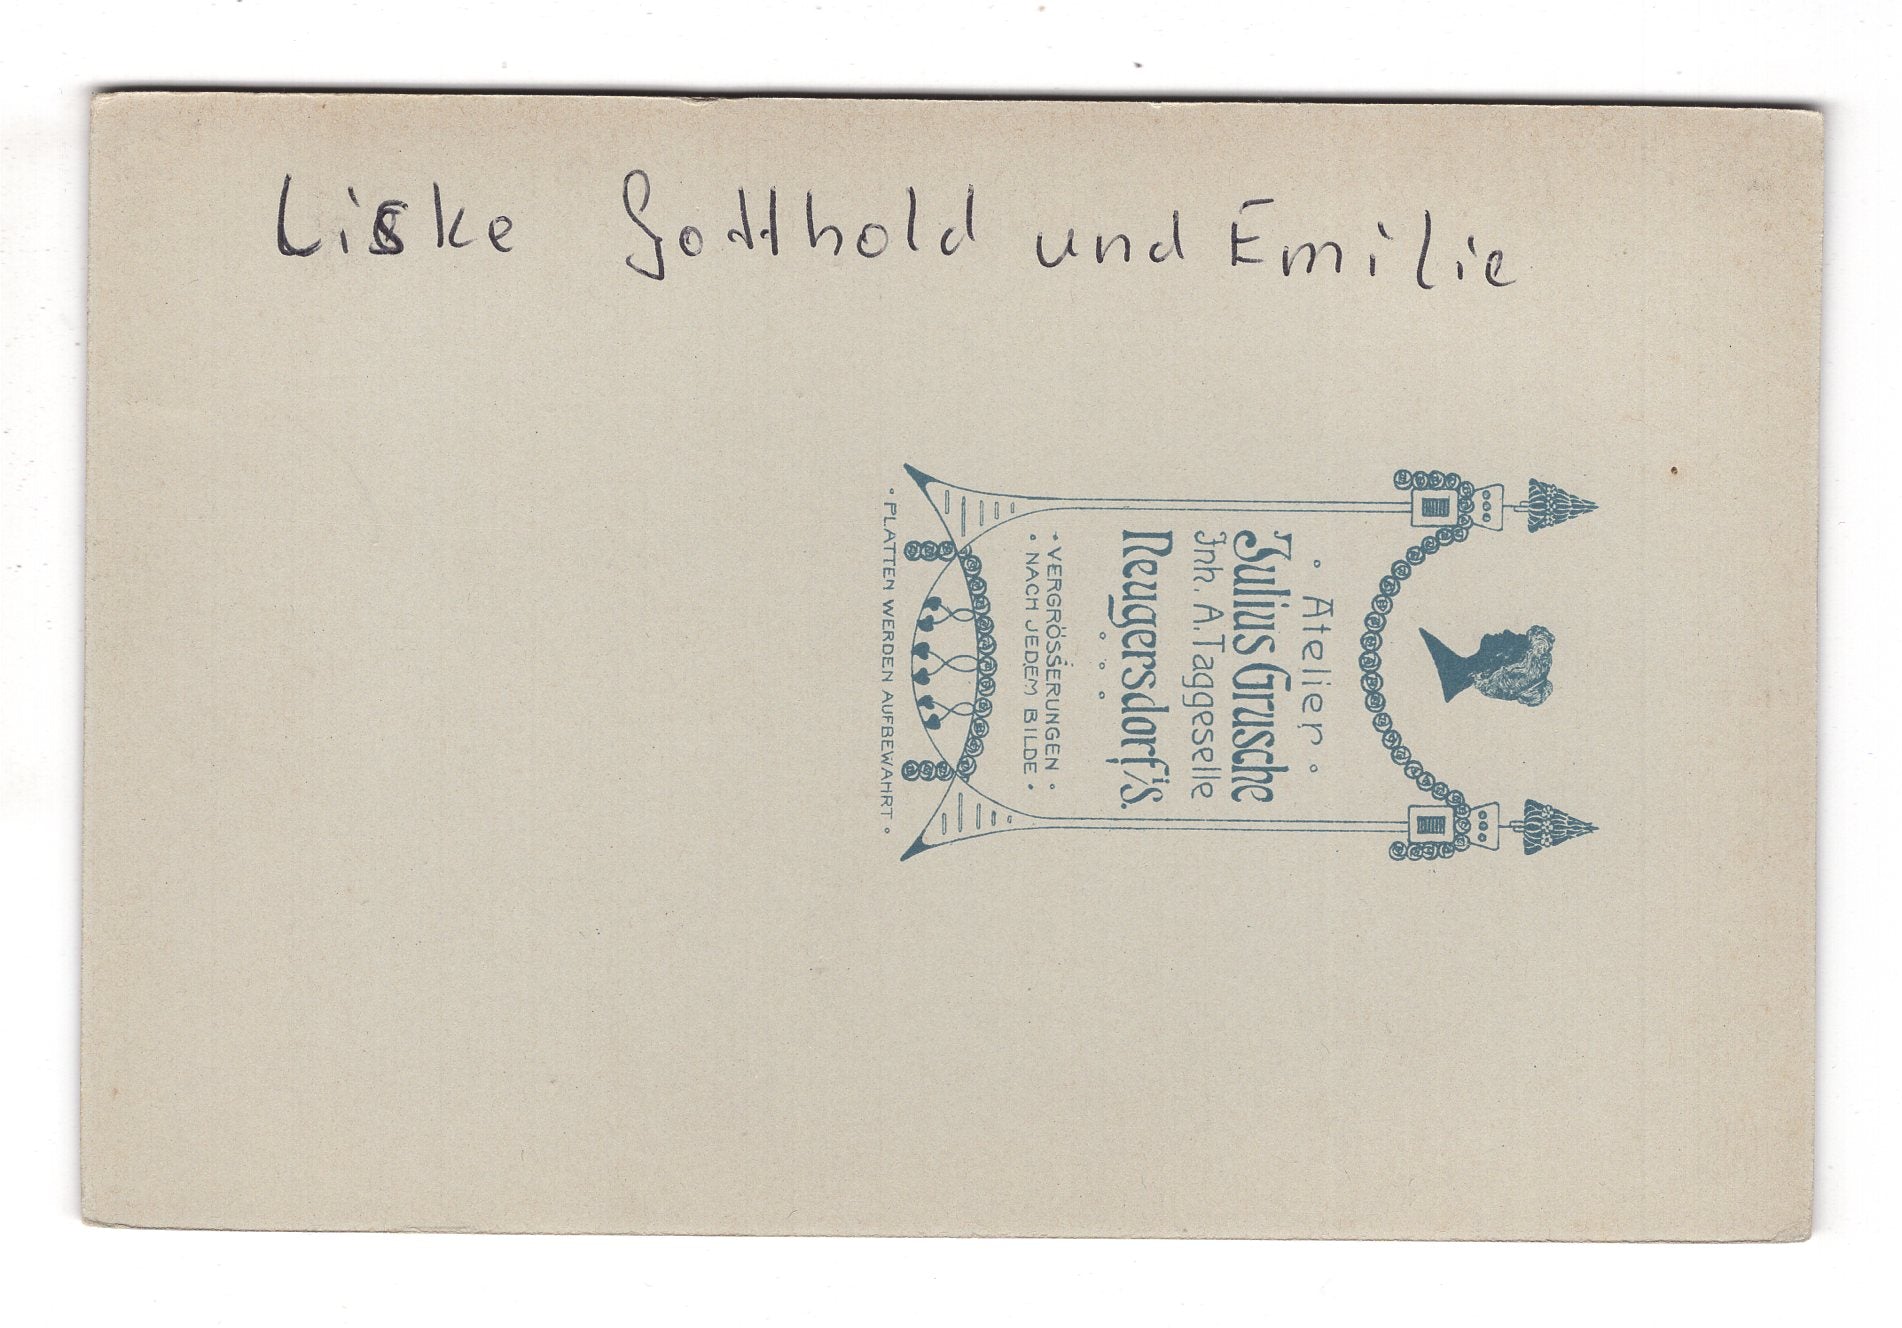 Liske Gotthold und Emilie
· Atelier ·
Julius Grusche
Inh. A. Taggeselle
Neugersdorf i/S.
· VERGRÖSSERUNGEN ·
· NACH JEDEM BILDE ·
· PLATTEN WERDEN AUFBEWAHRT ·